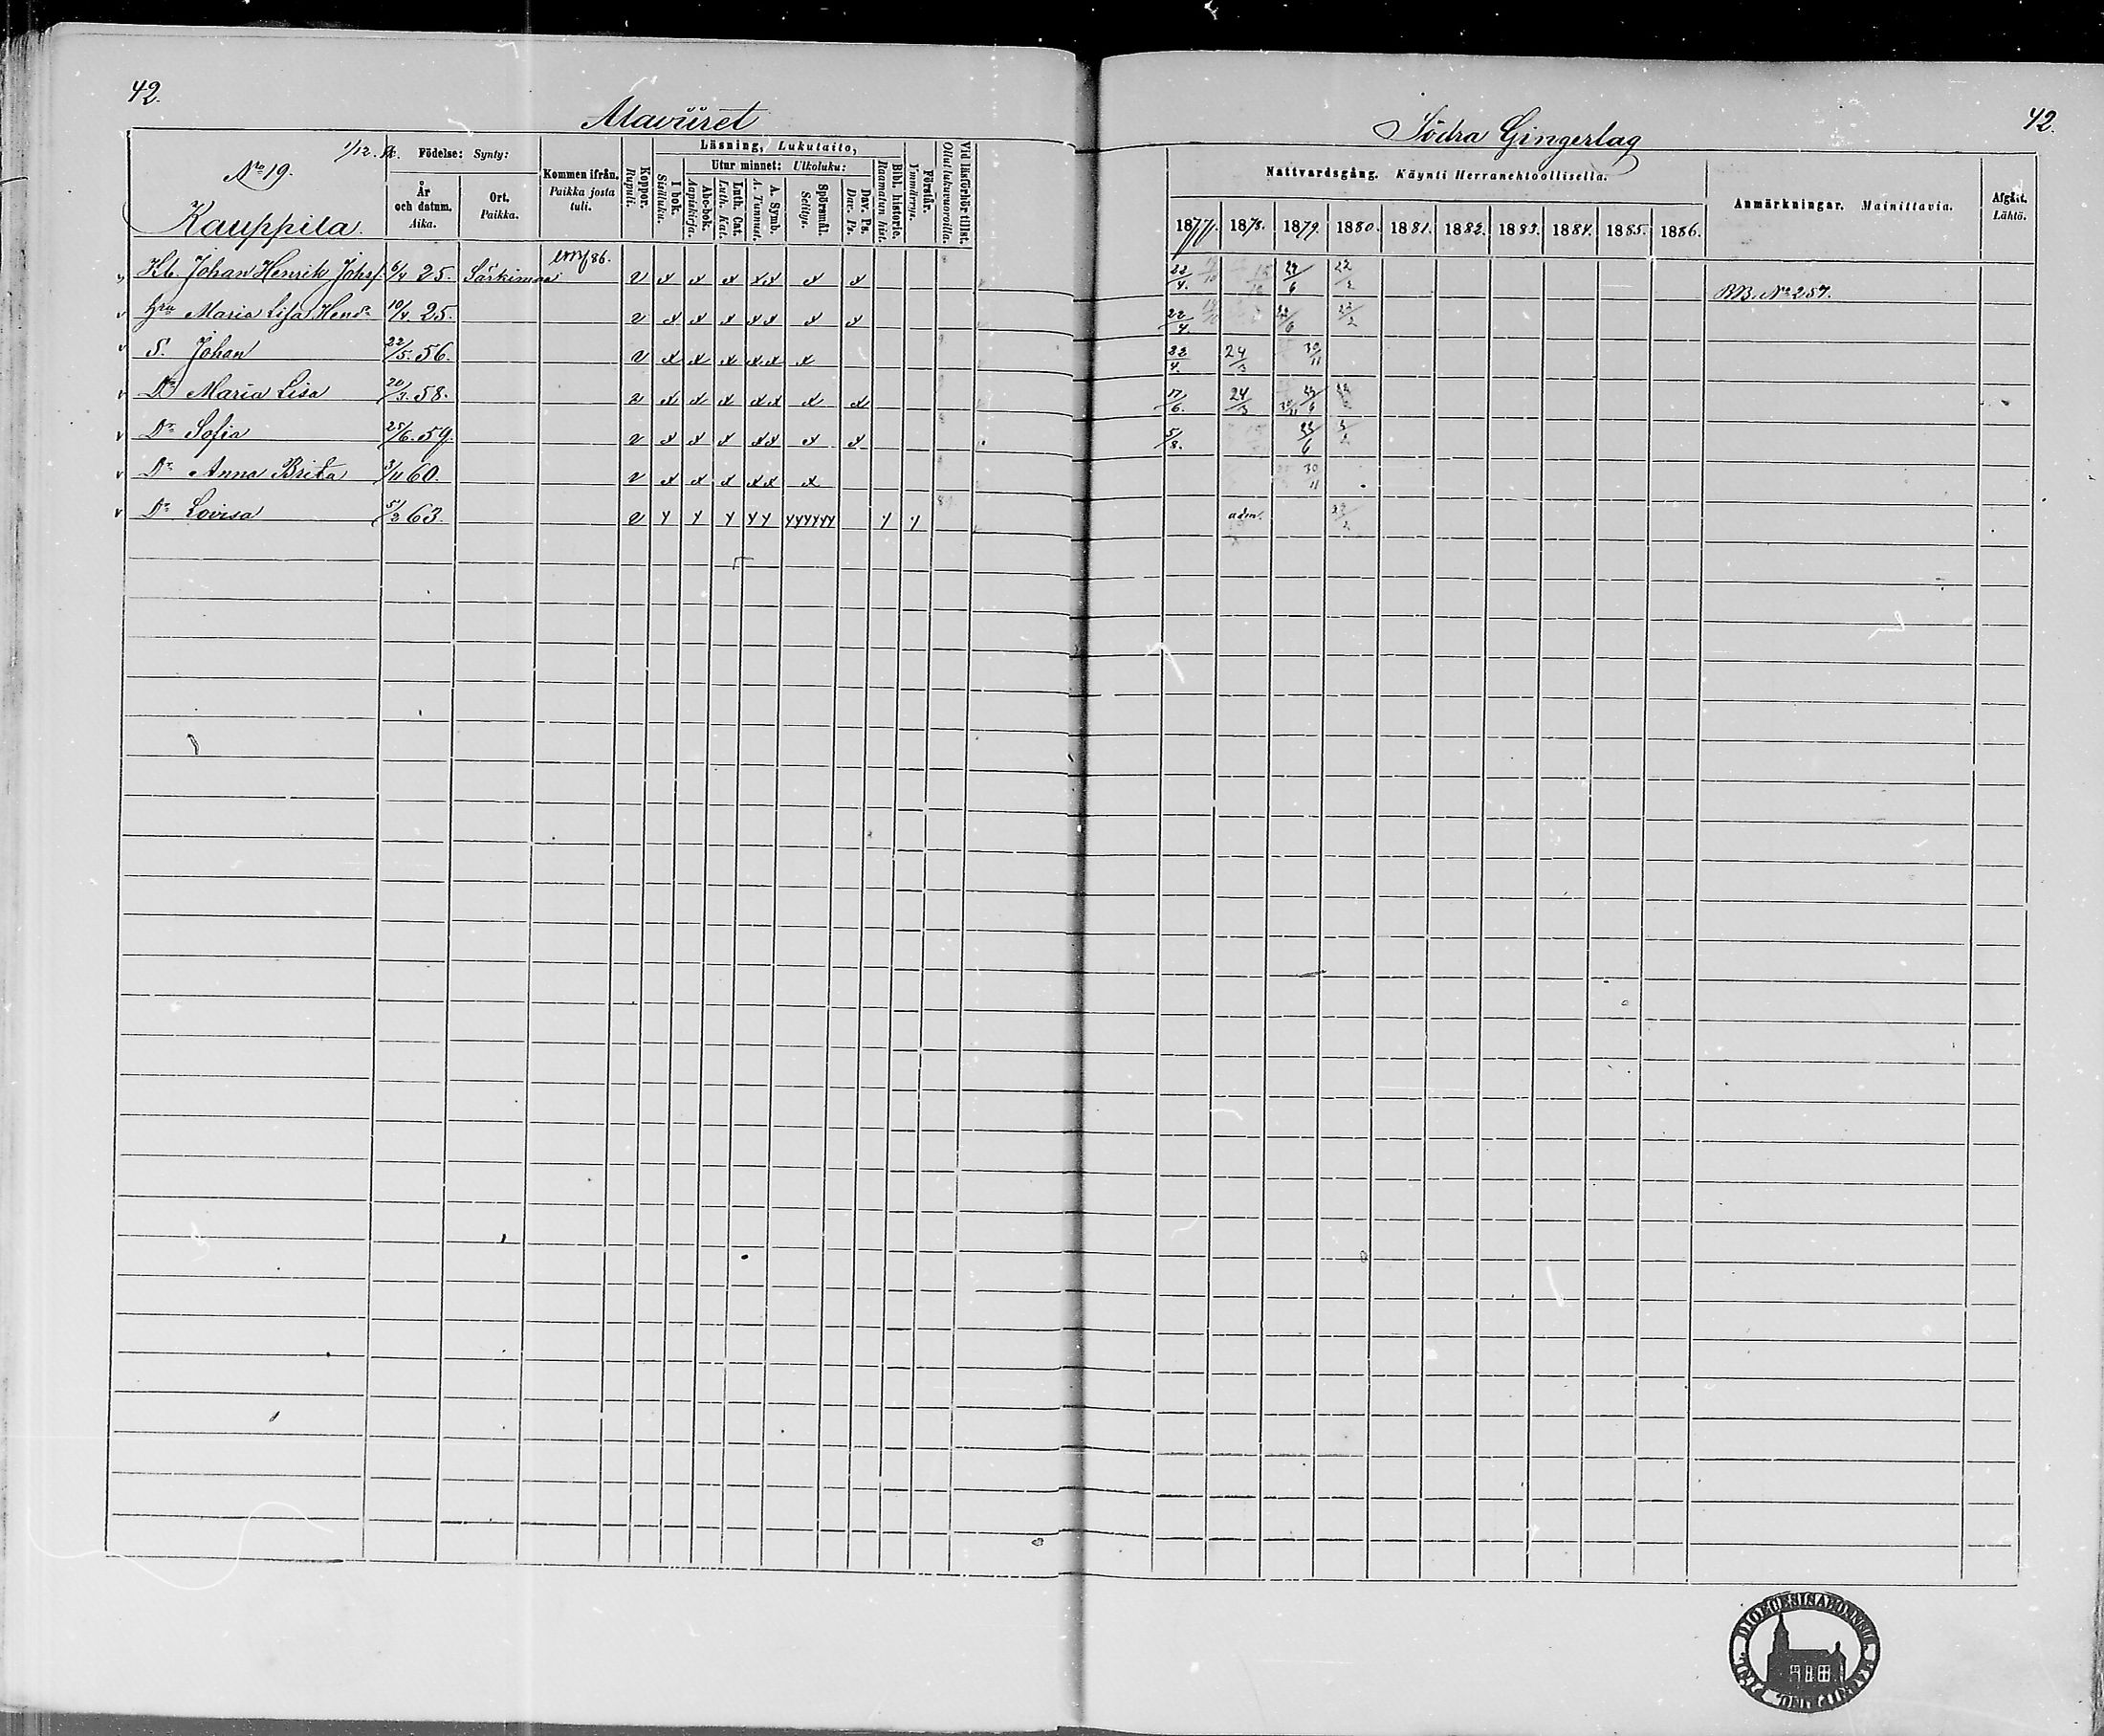 42.
Alavüret
Södra Gingerlag
42.
No 19.
1/12.
Kauppila.
Födelse: Synty:
År och datum. Aika.
Ort. Paikka.
Kommen ifrån. Paikka josta tuli.
Koppor. Rupuli.
Läsning, Lukutaito,
I bok. Sisäluku.
Utur minnet: Ulkoluku:
Abc-bok. Aapiskirja.
Luth. Cat. Luth. Kat.
A. Symb. A. Tunnust.
Spörsmål. Selitys.
Dav. Ps. Dav. Ps.
Bibl. historie. Raamatun hist.
Förstår. Ymmärrys.
Vid läsförhör tillst. Ollut lukuvuoroilla.
Nattvardsgång. Käynti Herranehtoollisella.
1877. 1878. 1879. 1880. 1881. 1882. 1883. 1884. 1885. 1886.
Anmärkningar. Mainittavia.
Afgått. Lähtö.
Johan Henrik Johsf. 6/4 25. Särkimaa 86. v x x x x x x x 22/4. 24/6 22/2 BB. No 257.
Hru Maria Lisa Hendr 10/4. 25. v x x x x x x x 22/4. 22/2
S. Johan 22/5. 56. v x x x x x x 22/4. 24/3 30/11
Dr Maria Lisa 20/3. 58. v x x x x x x x 17/6. 24/3
Dr Sofia 25/6. 59. v x x x x x x x 5/8.
Dr Anna Brita 3/11 60. v x x x x x x 30/11
Dr Lovisa 5/3 63. v y y y y y yyyyyy y y adm.